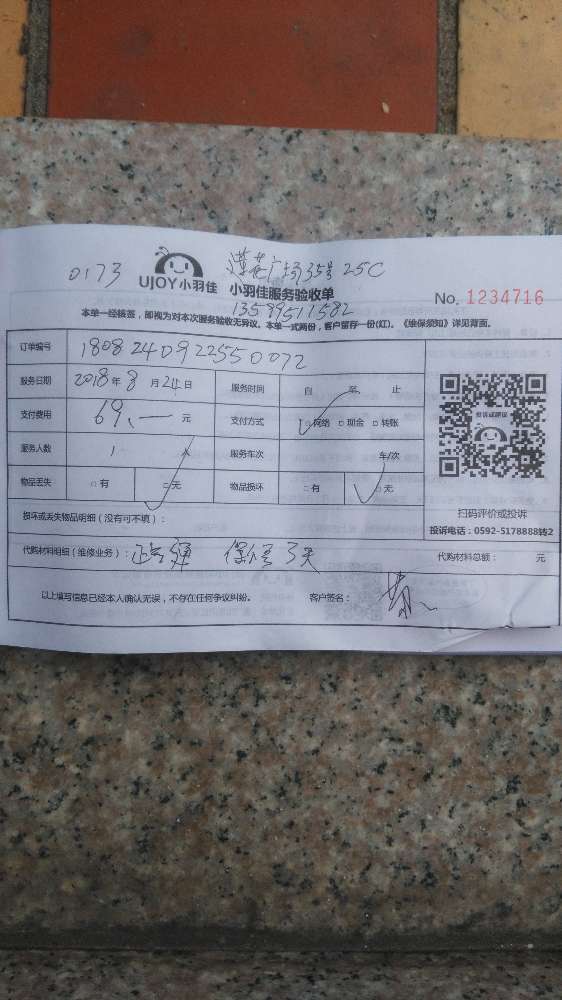 0173 莲花广场35号 25C
UJOY小羽佳 小羽佳服务验收单
13599511582
No. 1234716
本单一经核签，即视为对本次服务验收无异议。本单一式两份，客户留存一份(红)。《维保须知》详见背面。
订单编号 180824092255 0072
服务日期 2018年8月24日 服务时间 自 至 止
支付费用 69.— 元 支付方式 □网络 □现金 □转账
服务人数 1 人 服务车次 车/次
物品丢失 □有 □无 物品损坏 □有 □无
投诉或建议
扫码评价或投诉
投诉电话：0592-5178888转2
损坏或丢失物品明细（没有可不填）：
代购材料明细（维修业务）： 保修3天 代购材料总额： 元
以上填写信息已经本人确认无误，不存在任何争议纠纷。 客户签名：